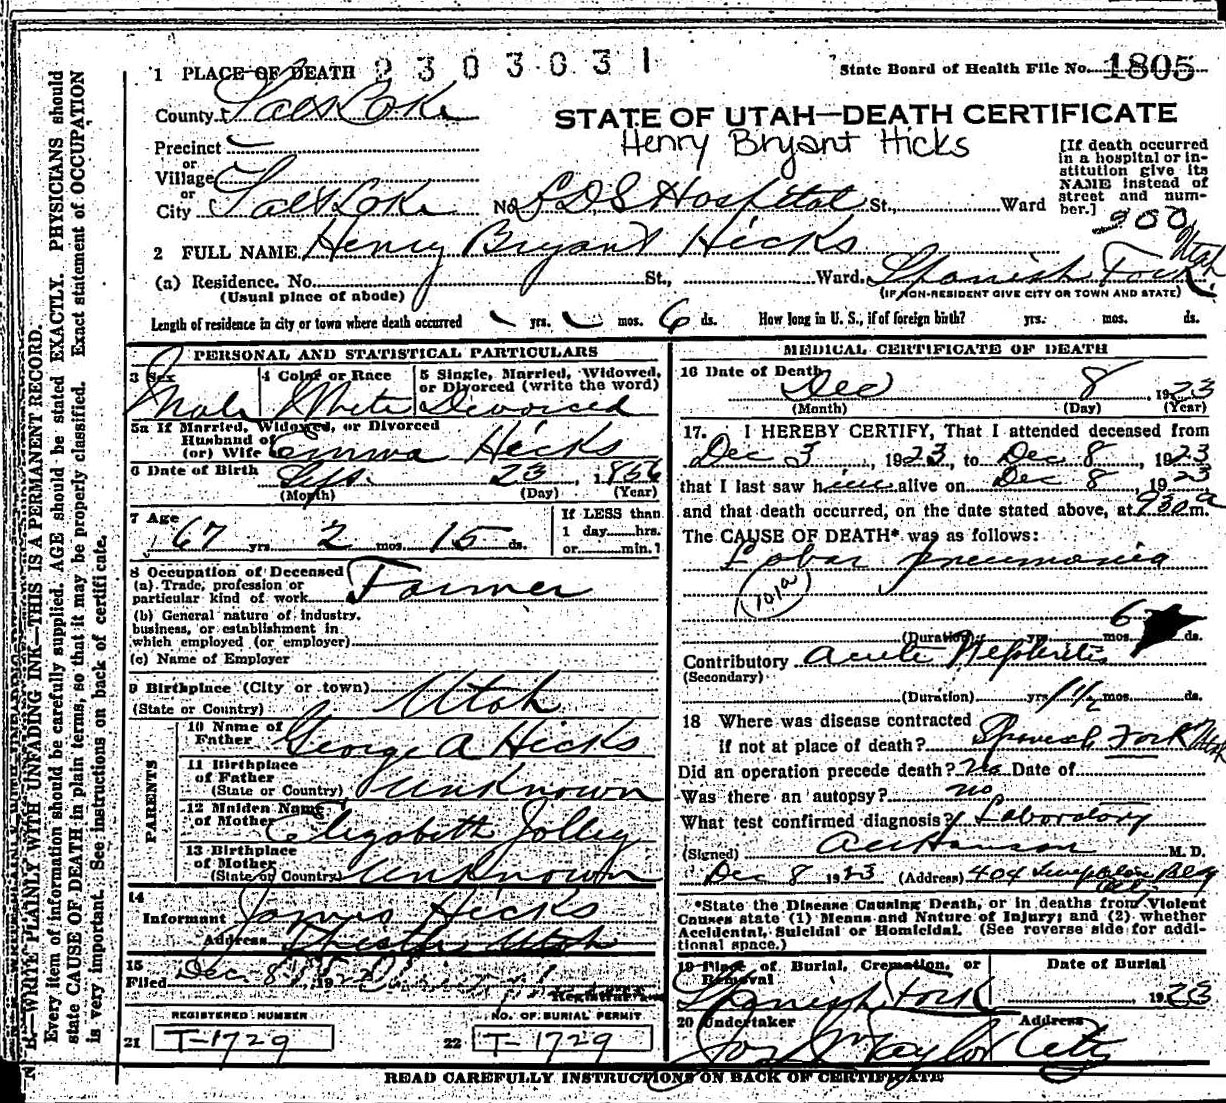 1 PLACE OF DEATH 2303031
State Board of Health File No. 1805
County Salt Lake
STATE OF UTAH—DEATH CERTIFICATE
Henry Bryant Hicks
Precinct
or
Village
or
City Salt Lake No. L D S Hospital St., Ward
[If death occurred
in a hospital or in-
stitution give its
NAME instead of
street and num-
ber.]
900
2 FULL NAME Henry Bryant Hicks
(a) Residence. No. St., Ward. Spanish Fork Utah.
(Usual place of abode) (IF NON-RESIDENT GIVE CITY OR TOWN AND STATE)
Length of residence in city or town where death occurred yrs. mos. 6 ds. How long in U. S., if of foreign birth? yrs. mos. ds.
PERSONAL AND STATISTICAL PARTICULARS
3 Sex
Male
4 Color or Race
White
5 Single, Married, Widowed,
or Divorced (write the word)
Divorced
5a If Married, Widowed, or Divorced
Husband of
(or) Wife Emma Hicks
6 Date of Birth Sept. 23, 1856
(Month) (Day) (Year)
7 Age
67 yrs. 2 mos. 15 ds.
If LESS than
1 day hrs.
or min.?
8 Occupation of Deceased
(a) Trade, profession or
particular kind of work Farmer
(b) General nature of industry,
business, or establishment in
which employed (or employer)
(c) Name of Employer
9 Birthplace (City or town)
(State or Country) Utah
PARENTS
10 Name of
Father George A Hicks
11 Birthplace
of Father
(State or Country) Unknown
12 Maiden Name
of Mother Elizabeth Jolley
13 Birthplace
of Mother
(State or Country) Unknown
14
Informant James Hicks
Address Utah
15
Filed Dec 8
Registrar
REGISTERED NUMBER
21 T-1729
NO. OF BURIAL PERMIT
22 T-1729
MEDICAL CERTIFICATE OF DEATH
16 Date of Death
Dec 8, 1923
(Month) (Day) (Year)
17. I HEREBY CERTIFY, That I attended deceased from
Dec 3, 1923, to Dec 8, 1923
that I last saw him alive on Dec 8 1923
and that death occurred, on the date stated above, at 930 a m.
The CAUSE OF DEATH* was as follows:
Lobar pneumonia
101a
(Duration) yrs. mos. 6 ds.
Contributory Acute Nephritis
(Secondary)
(Duration) yrs. 1 1/2 mos. ds.
18 Where was disease contracted
if not at place of death? Spanish Fork Utah
Did an operation precede death? no Date of
Was there an autopsy? no
What test confirmed diagnosis? Laboratory
(Signed) M. D.
Dec 8 1923 (Address) 404 Bldg
*State the Disease Causing Death, or in deaths from Violent
Causes state (1) Means and Nature of Injury; and (2) whether
Accidental, Suicidal or Homicidal. (See reverse side for addi-
tional space.)
19 Place of Burial, Cremation, or
Removal
Spanish Fork
Date of Burial
1923
20 Undertaker Address
Jos Wm Taylor City
READ CAREFULLY INSTRUCTIONS ON BACK OF CERTIFICATE
N. B.—WRITE PLAINLY WITH UNFADING INK—THIS IS A PERMANENT RECORD.
Every item of information should be carefully supplied. AGE should be stated EXACTLY. PHYSICIANS should
state CAUSE OF DEATH in plain terms, so that it may be properly classified. Exact statement of OCCUPATION
is very important. See instructions on back of certificate.